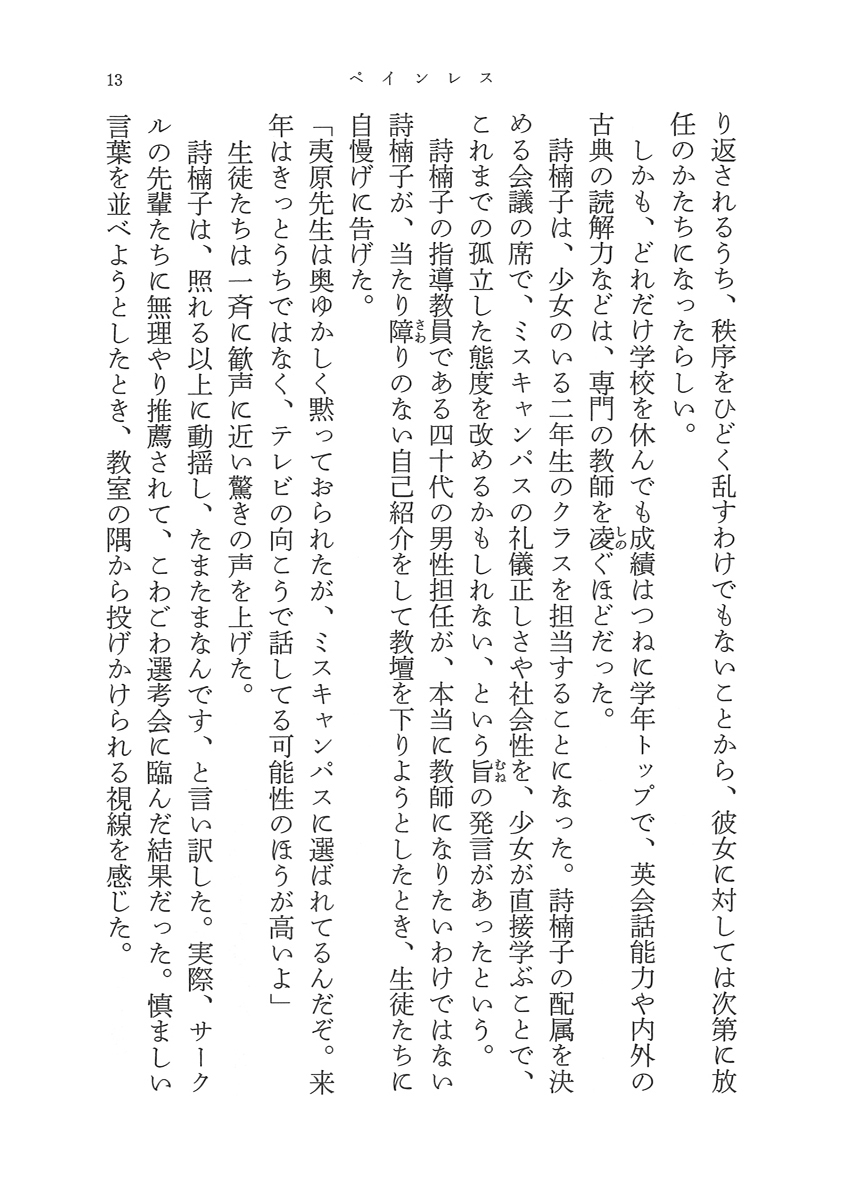 13
ペインレス
り返されるうち、秩序をひどく乱すわけでもないことから、彼女に対しては次第に放
任のかたちになったらしい。
しかも、どれだけ学校を休んでも成績はつねに学年トップで、英会話能力や内外の
古典の読解力などは、専門の教師を凌しのぐほどだった。
詩楠子は、少女のいる二年生のクラスを担当することになった。詩楠子の配属を決
める会議の席で、ミスキャンパスの礼儀正しさや社会性を、少女が直接学ぶことで、
これまでの孤立した態度を改めるかもしれない、という旨むねの発言があったという。
詩楠子の指導教員である四十代の男性担任が、本当に教師になりたいわけではない
詩楠子が、当たり障さわりのない自己紹介をして教壇を下りようとしたとき、生徒たちに
自慢げに告げた。
「夷原先生は奥ゆかしく黙っておられたが、ミスキャンパスに選ばれてるんだぞ。来
年はきっとうちではなく、テレビの向こうで話してる可能性のほうが高いよ」
生徒たちは一斉に歓声に近い驚きの声を上げた。
詩楠子は、照れる以上に動揺し、たまたまなんです、と言い訳した。実際、サーク
ルの先輩たちに無理やり推薦されて、こわごわ選考会に臨んだ結果だった。慎ましい
言葉を並べようとしたとき、教室の隅から投げかけられる視線を感じた。